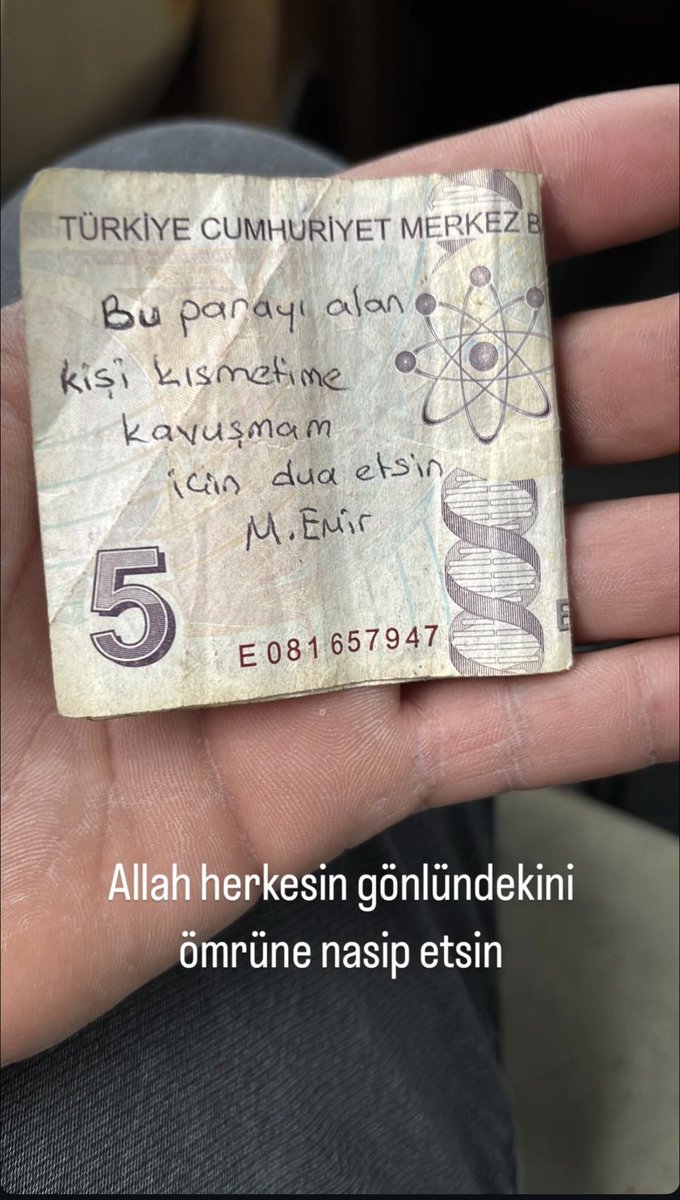 TÜRKİYE CUMHURİYET MERKEZ B
Bu parayı alan
kişi kısmetime
kavuşmam
için dua etsin
M. Emir
5
E 081657947
Allah herkesin gönlündekini
ömrüne nasip etsin